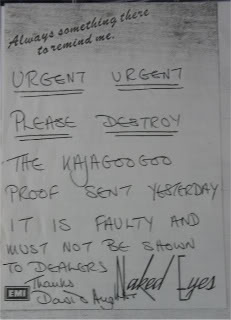 Always something there
to remind me.
URGENT URGENT
PLEASE DESTROY
THE KAJAGOOGOO
PROOF SENT YESTERDAY
IT IS FAULTY AND
MUST NOT BE SHOWN
TO DEALERS
Thanks
EMI
Naked Eyes